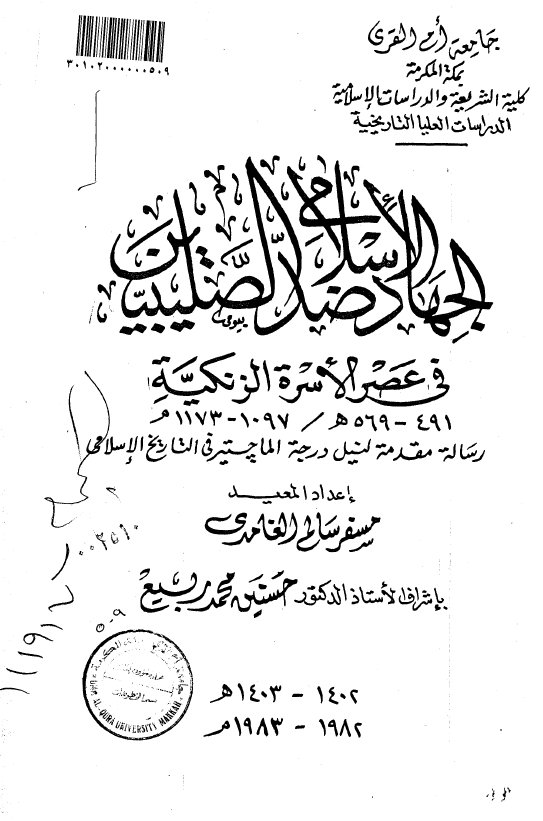 جامعة أم القرى
بمكة المكرمة
كلية الشريعة والدراسات الإسلامية
الدراسات العليا التاريخية
٣٠١٠٢٠٠٠٠٠٠٥٠٩
الجهاد الإسلامي ضد الصليبيين
في عصر الأسرة الزنكية
٤٩١ - ٥٦٩ هـ / ١٠٩٧ - ١١٧٣ م
رسالة مقدمة لنيل درجة الماجستير في التاريخ الإسلامي
إعداد المعيد
مسفر سالم الغامدي
بإشراف الأستاذ الدكتور حسنين محمد ربيع
٥٠٩
١٤٠٢ - ١٤٠٣ هـ
١٩٨٢ - ١٩٨٣ م
AL-QURA UNIVERSITY MAKKAH